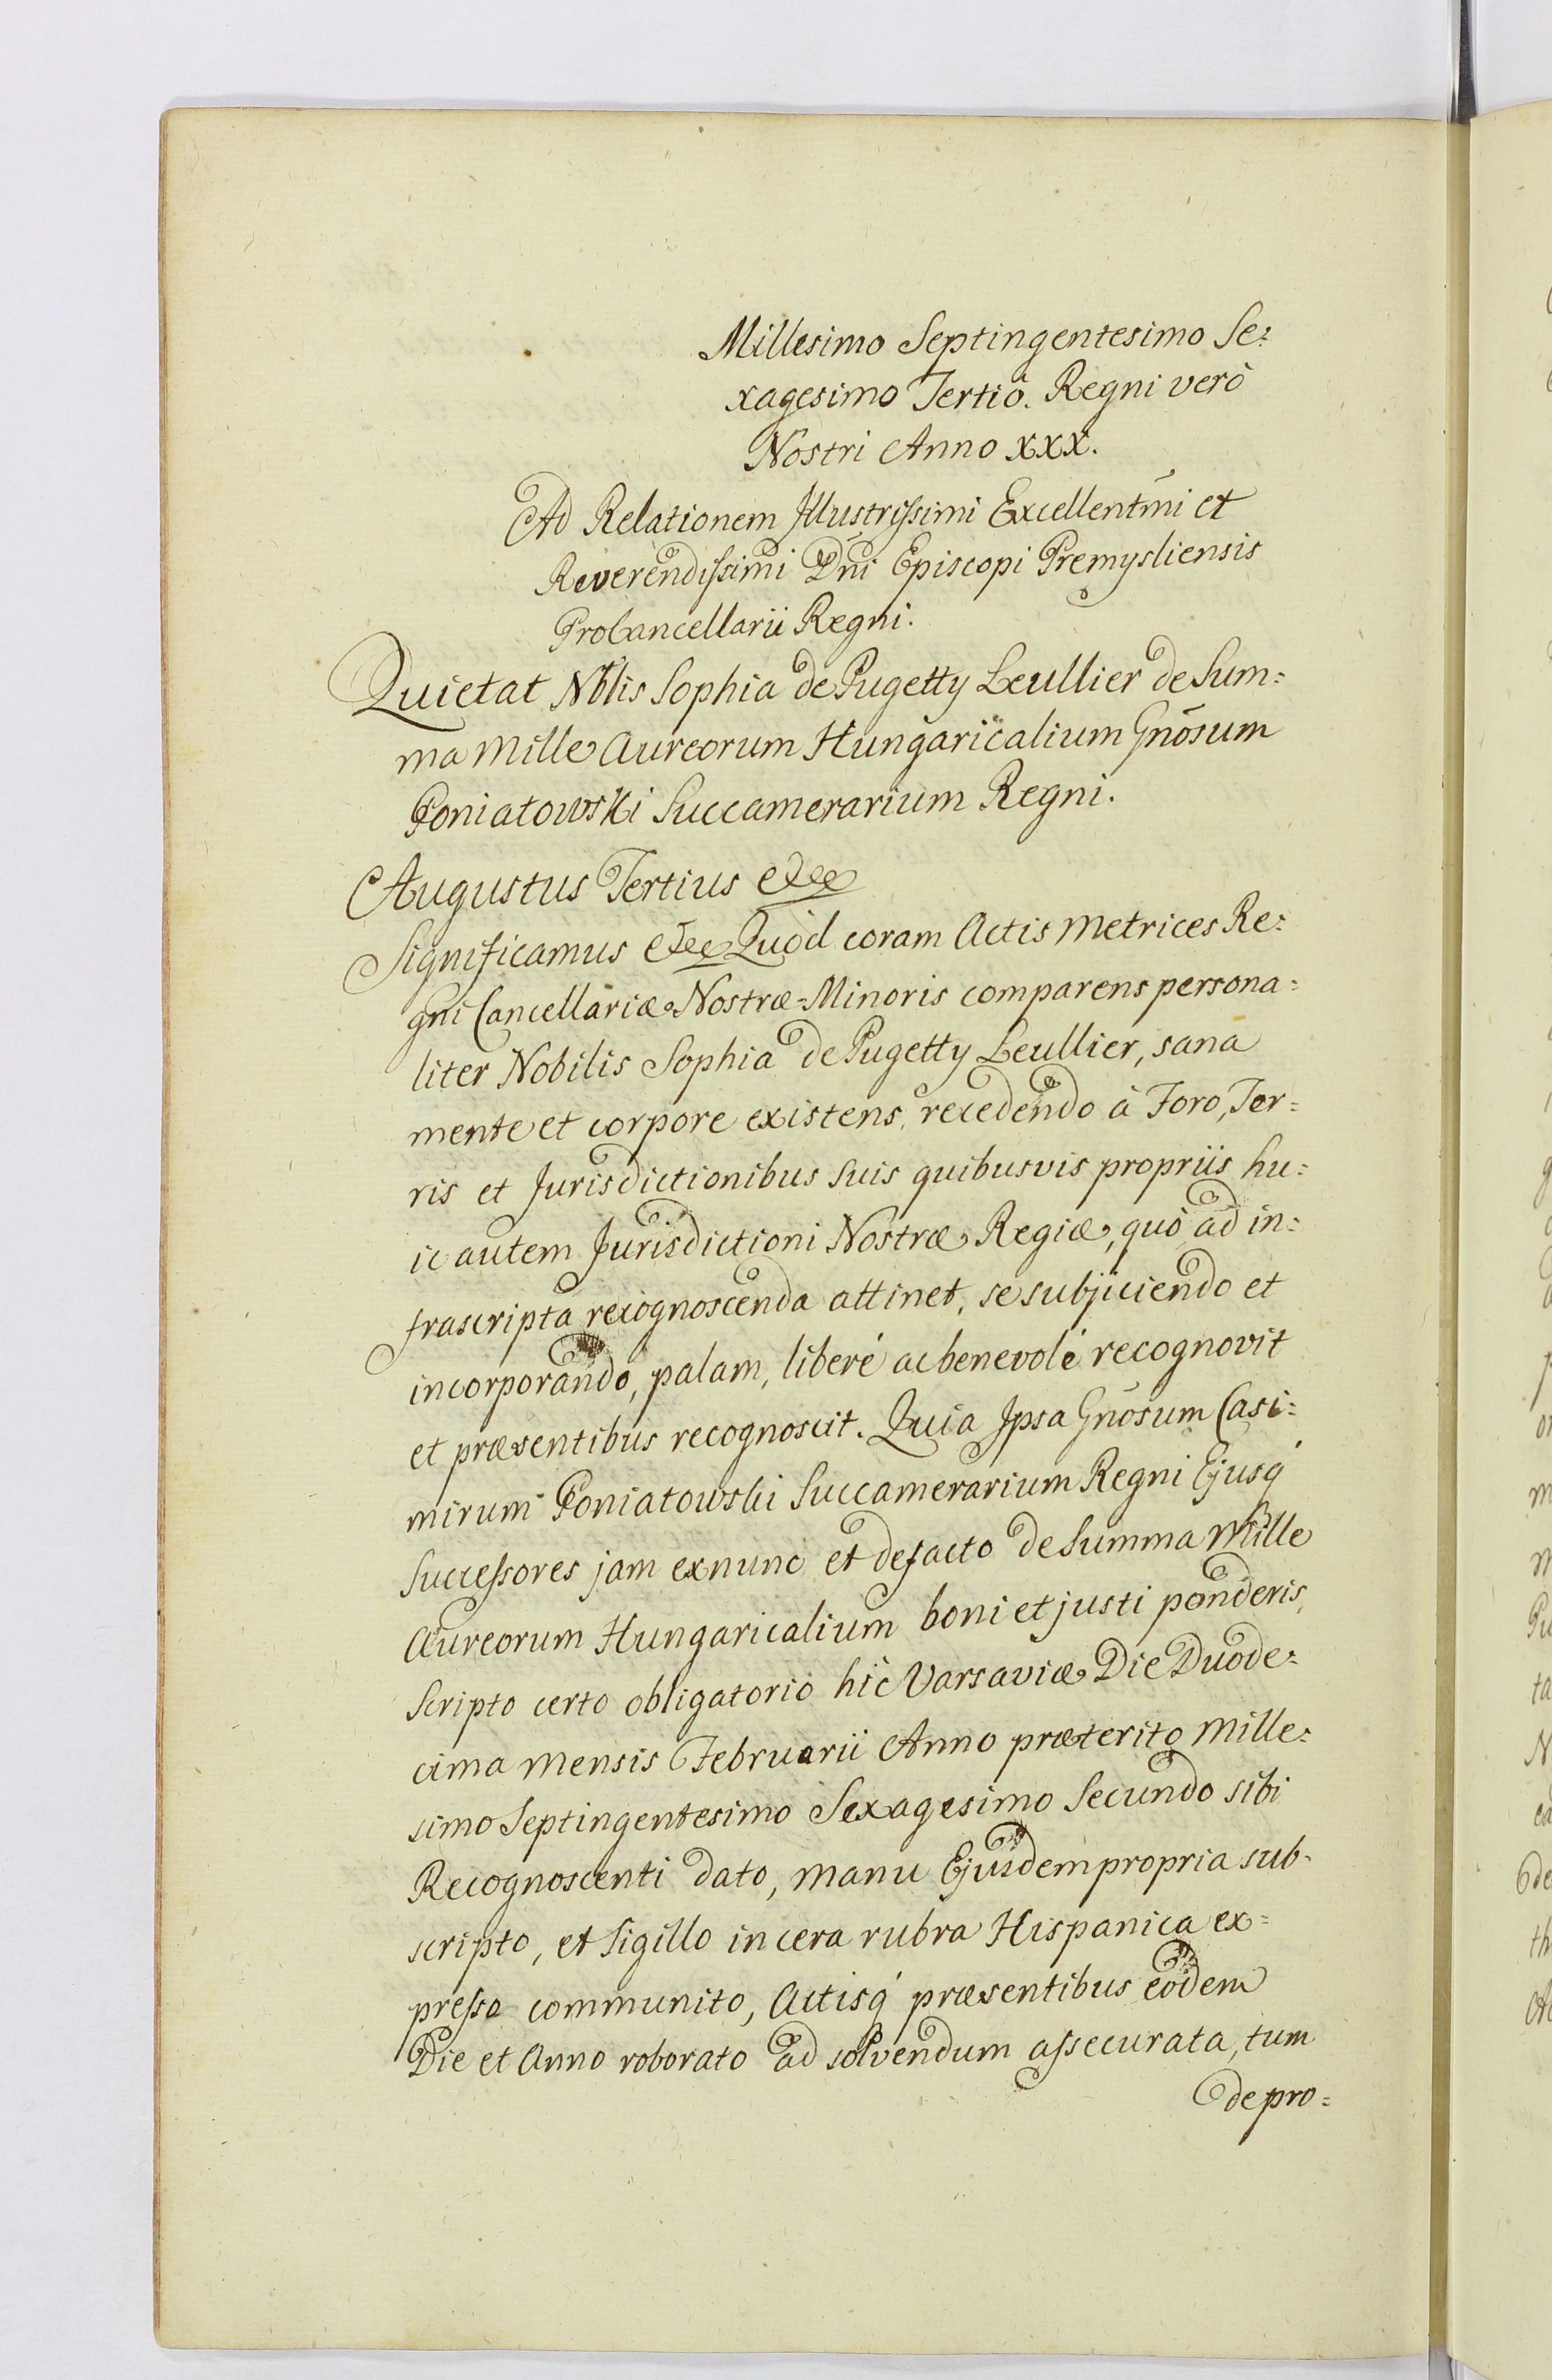 Millesimo Septingentesimo Se:
xagesimo Tertiô. Regni verò
Nostri Anno XXX.
Ad Relationem Illustrissimi Excellentm̄i et
Reverendissimi Dn̄i Episcopi Premysliensis
ProCancellarii Regni.
Quietat Nb̄lis Sophia de Pugetty Leullier de Sum:
ma Mille Aureorum Hungaricalium Gn̄osum
Poniatowski Succamerarium Regni.
Augustus Tertius &c̄
Significamus &c̄ Quod coram Actis Metrices Re:
gni Cancellariæ Nostræ Minoris comparens persona:
liter Nobilis Sophia de Pugetty Leullier, sana
mente et corpore existens, recedendo à Foro, Ter:
ris et Jurisdictionibus suis quibusvis propriis hu:
ic autem Jurisdictioni Nostræ Regiæ, quò ad in:
frascripta recognoscenda attinet, se subjiciendo et
incorporando, palam, liberé ac benevolé recognovit
et præsentibus recognoscit. Quia Ipsa Gn̄osum Casi:
mirum Poniatowski Succamerarium Regni Ejusq́
Successores jam ex nunc et de facto de Summa Mille
Aureorum Hungaricalium boni et justi ponderis,
Scripto certo obligatorio hîc Varsaviæ Die Duode:
cima Mensis Februarii Anno præterito Mille:
simo Septingentesimo Sexagesimo Secundo sibi
Recognoscenti dato, manu Ejusdem propria sub:
scripto, et Sigillo in cera rubra Hispanica ex:
presso communito, Actisq́ præsentibus eodem
Die et Anno roborato ad solvendum assecurata, tum
de pro: